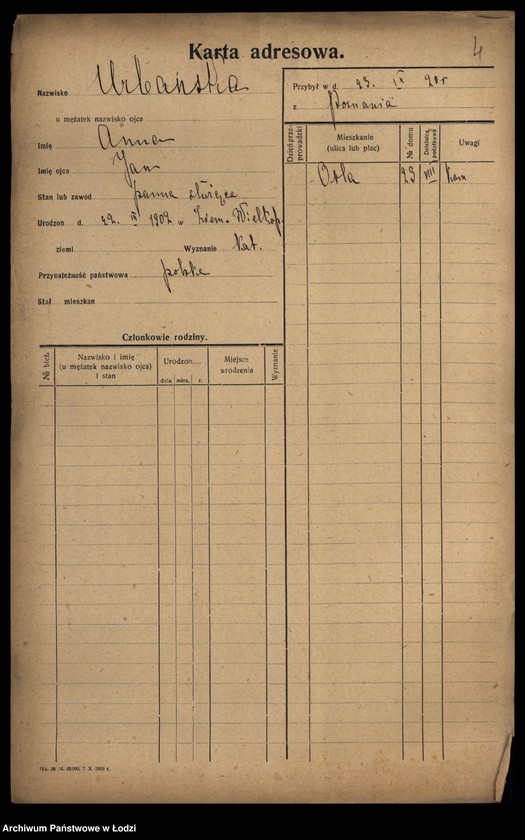 Karta adresowa.
4
Nazwisko Urbańska
u mężatek nazwisko ojca
Imię Anna
Imię ojca Jan
Stan lub zawód panna służąca
Urodzon d. 22. 1902 w Wielkop.
ziemi Wyznanie kat.
Przynależność państwowa polska
Stał mieszkan
Przybył w d. 23. IX 20 r
z Poznania
Dzień przeprowadzki
Mieszkanie (ulica lub plac)
№ domu
Dzielnica podatkowa
Uwagi
Orla 23 VIII
Członkowie rodziny.
№ bież.
Nazwisko i imię
(u mężatek nazwisko ojca)
i stan
Urodzon
dnia mies. r.
Miejsce
urodzenia
Wyznanie
7. X. 1919 r.
Archiwum Państwowe w Łodzi